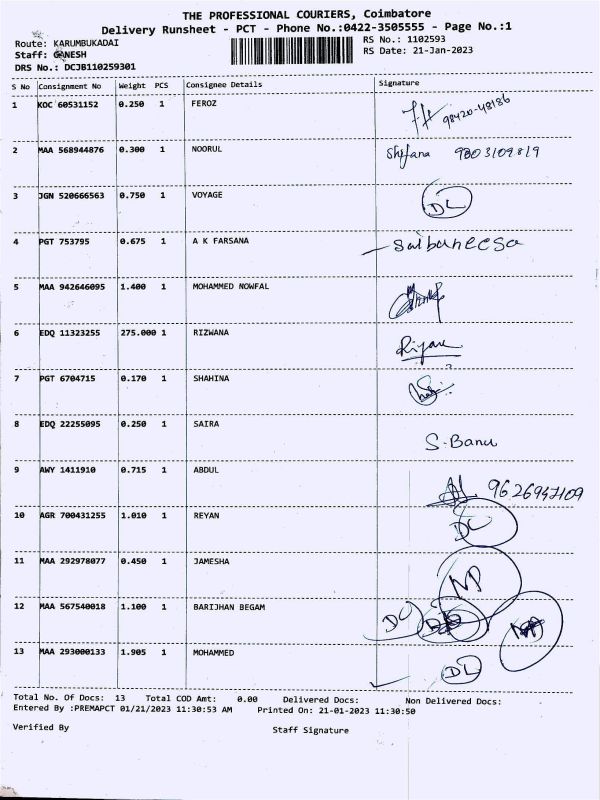 THE PROFESSIONAL COURIERS, Coimbatore
Delivery Runsheet - PCT - Phone No.:0422-3505555 - Page No.:1
Route: KARUMBUKADAI
RS No.: 1102593
Staff: GANESH
RS Date: 21-Jan-2023
DRS No.: DCJB110259301
S No Consignment No Weight PCS Consignee Details Signature
1 KOC 60531152 0.250 1 FEROZ 98420-48186
2 MAA 568944876 0.300 1 NOORUL Shifana 9803109819
3 JGN 520666563 0.750 1 VOYAGE DL
4 PGT 753795 0.675 1 A K FARSANA Saibuneesa
5 MAA 942646095 1.400 1 MOHAMMED NOWFAL
6 EDQ 11323255 275.000 1 RIZWANA
7 PGT 6704715 0.170 1 SHAHINA
8 EDQ 22255095 0.250 1 SAIRA S.Banu
9 AWY 1411910 0.715 1 ABDUL
10 AGR 700431255 1.010 1 REYAN DL
11 MAA 292978077 0.450 1 JAMESHA NP
12 MAA 567540018 1.100 1 BARIJHAN BEGAM DL
13 MAA 293000133 1.905 1 MOHAMMED DL
Total No. Of Docs: 13 Total COD Amt: 0.00 Delivered Docs: Non Delivered Docs:
Entered By :PREMAPCT 01/21/2023 11:30:53 AM Printed On: 21-01-2023 11:30:50
Verified By Staff Signature